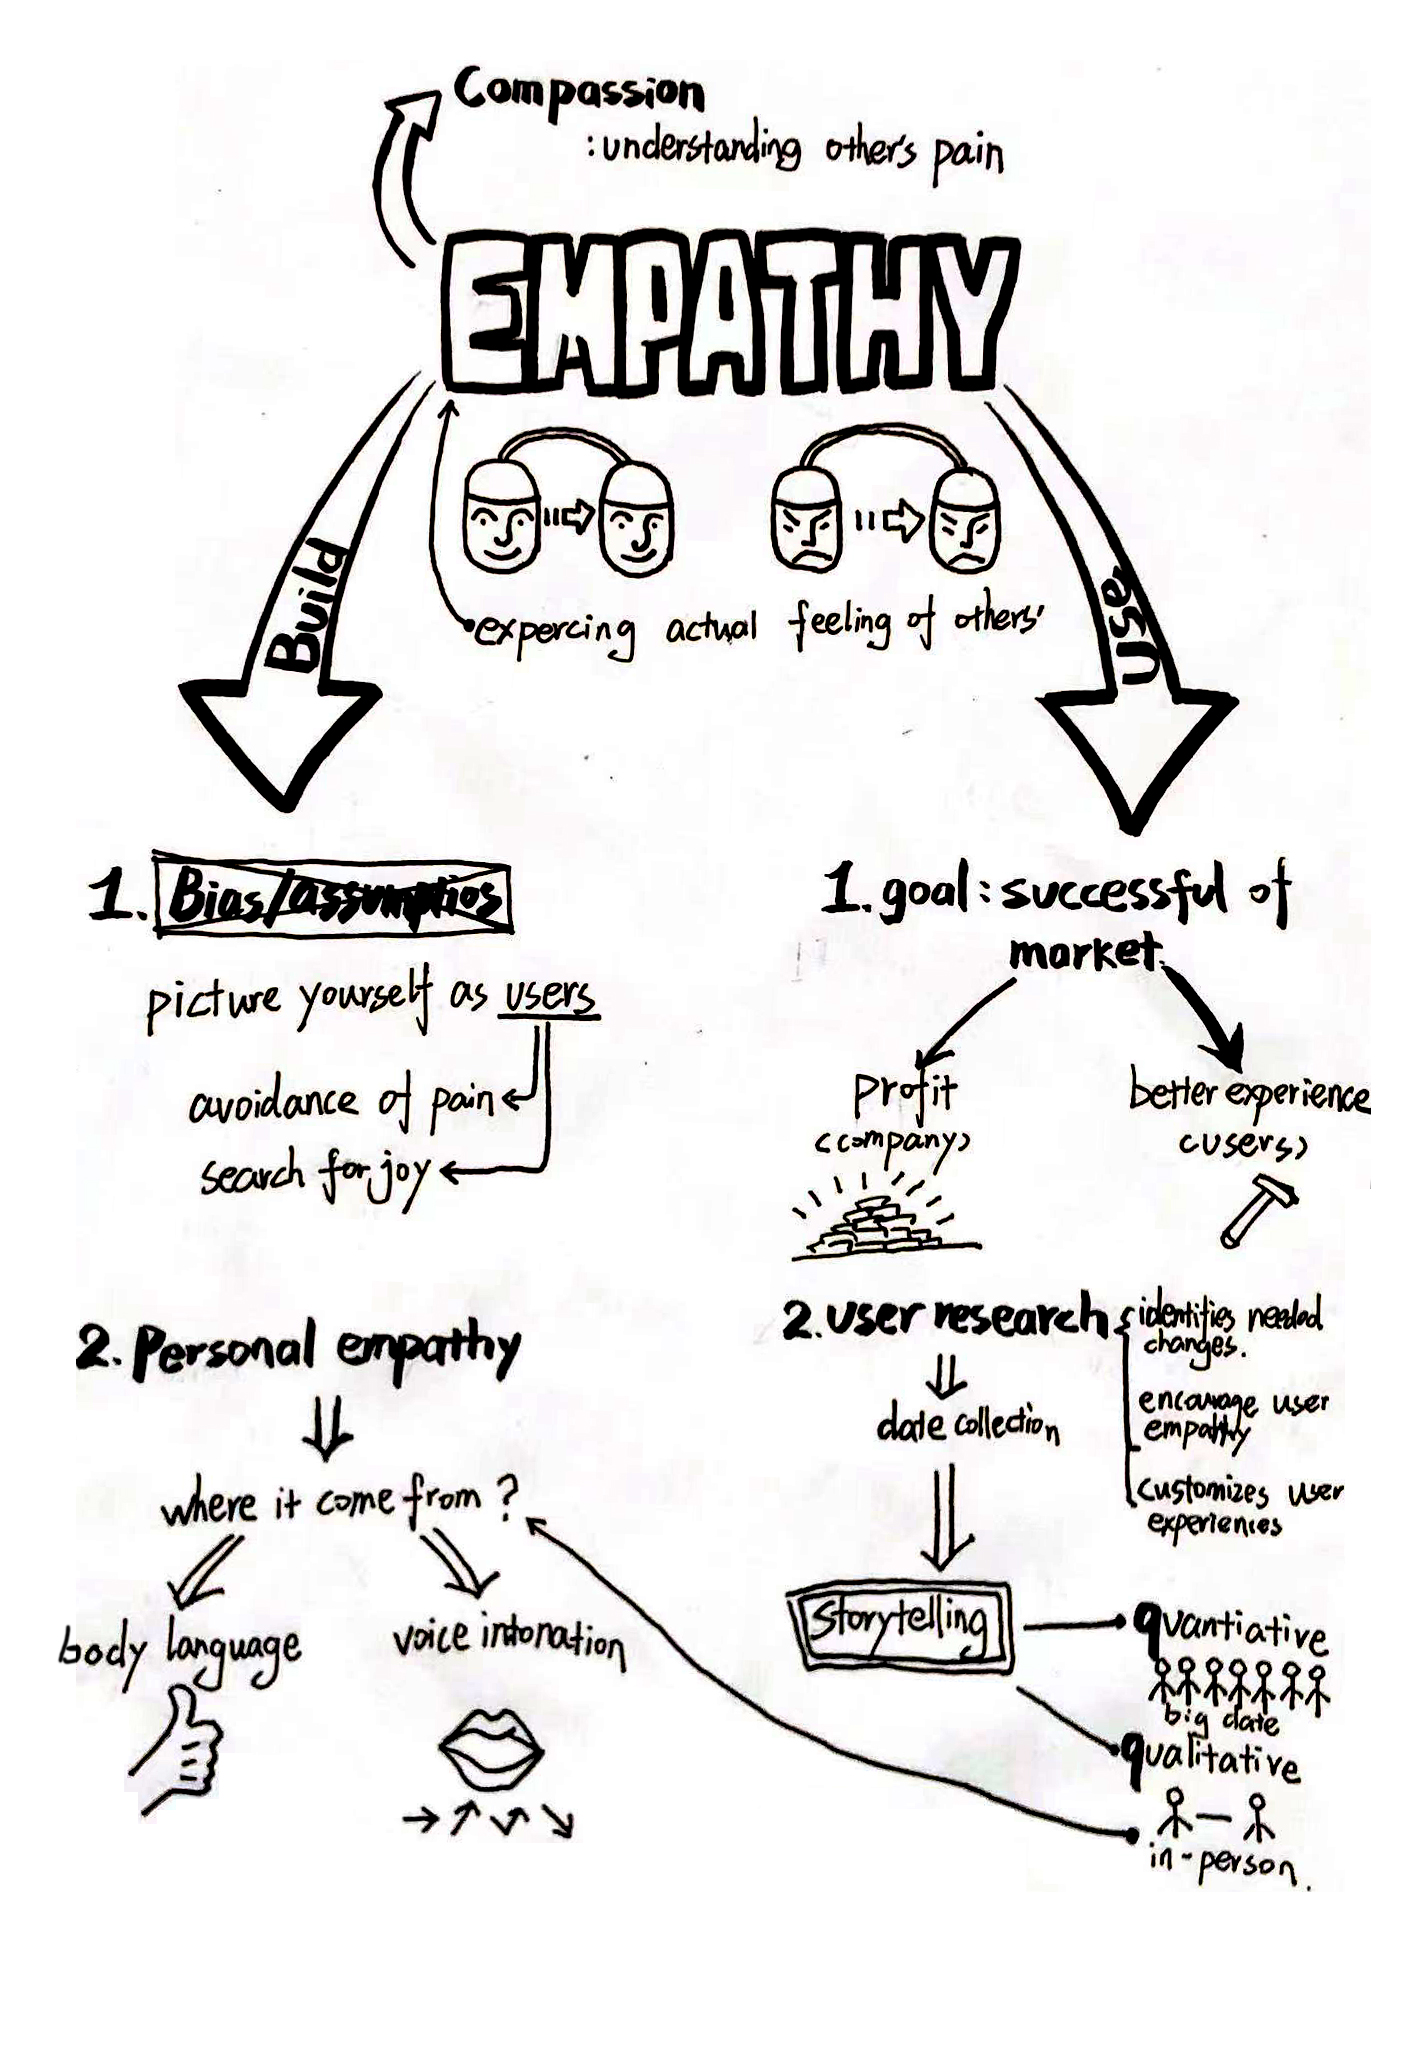 Compassion
:understanding other's pain
EMPATHY
Build
Use
expercing actual feeling of others'
1. Bias/assumptios
picture yourself as users
avoidance of pain
search for joy
2. Personal empathy
where it come from?
body language
voice intonation
1. goal: successful of
market.
profit
<company>
better experience
<users>
2. user research
identifies needed
changes.
encourage user
empathy
customizes user
experiences
date collection
Storytelling
quantiative
big date
qualitative
in-person.